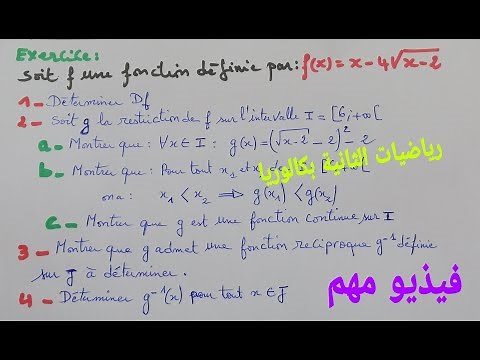 Exercice:
Soit f une fonction définie par: f(x) = x - 4√x-2
1 - Déterminer Df
2 - Soit g la restriction de f sur l'intervalle I = [6; +∞[
a - Montrer que: ∀x ∈ I : g(x) = (√x-2 - 2)² - 2
b - Montrer que: Pour tout x₁ et x₂ de [6; +∞[
on a: x₁ < x₂ ⟹ g(x₁) < g(x₂)
c - Montrer que g est une fonction continue sur I
3 - Montrer que g admet une fonction reciproque g⁻¹ définie
sur J à déterminer.
4 - Déterminer g⁻¹(x) pour tout x ∈ J
رياضيات الثانية بكالوريا
فيذيو مهم